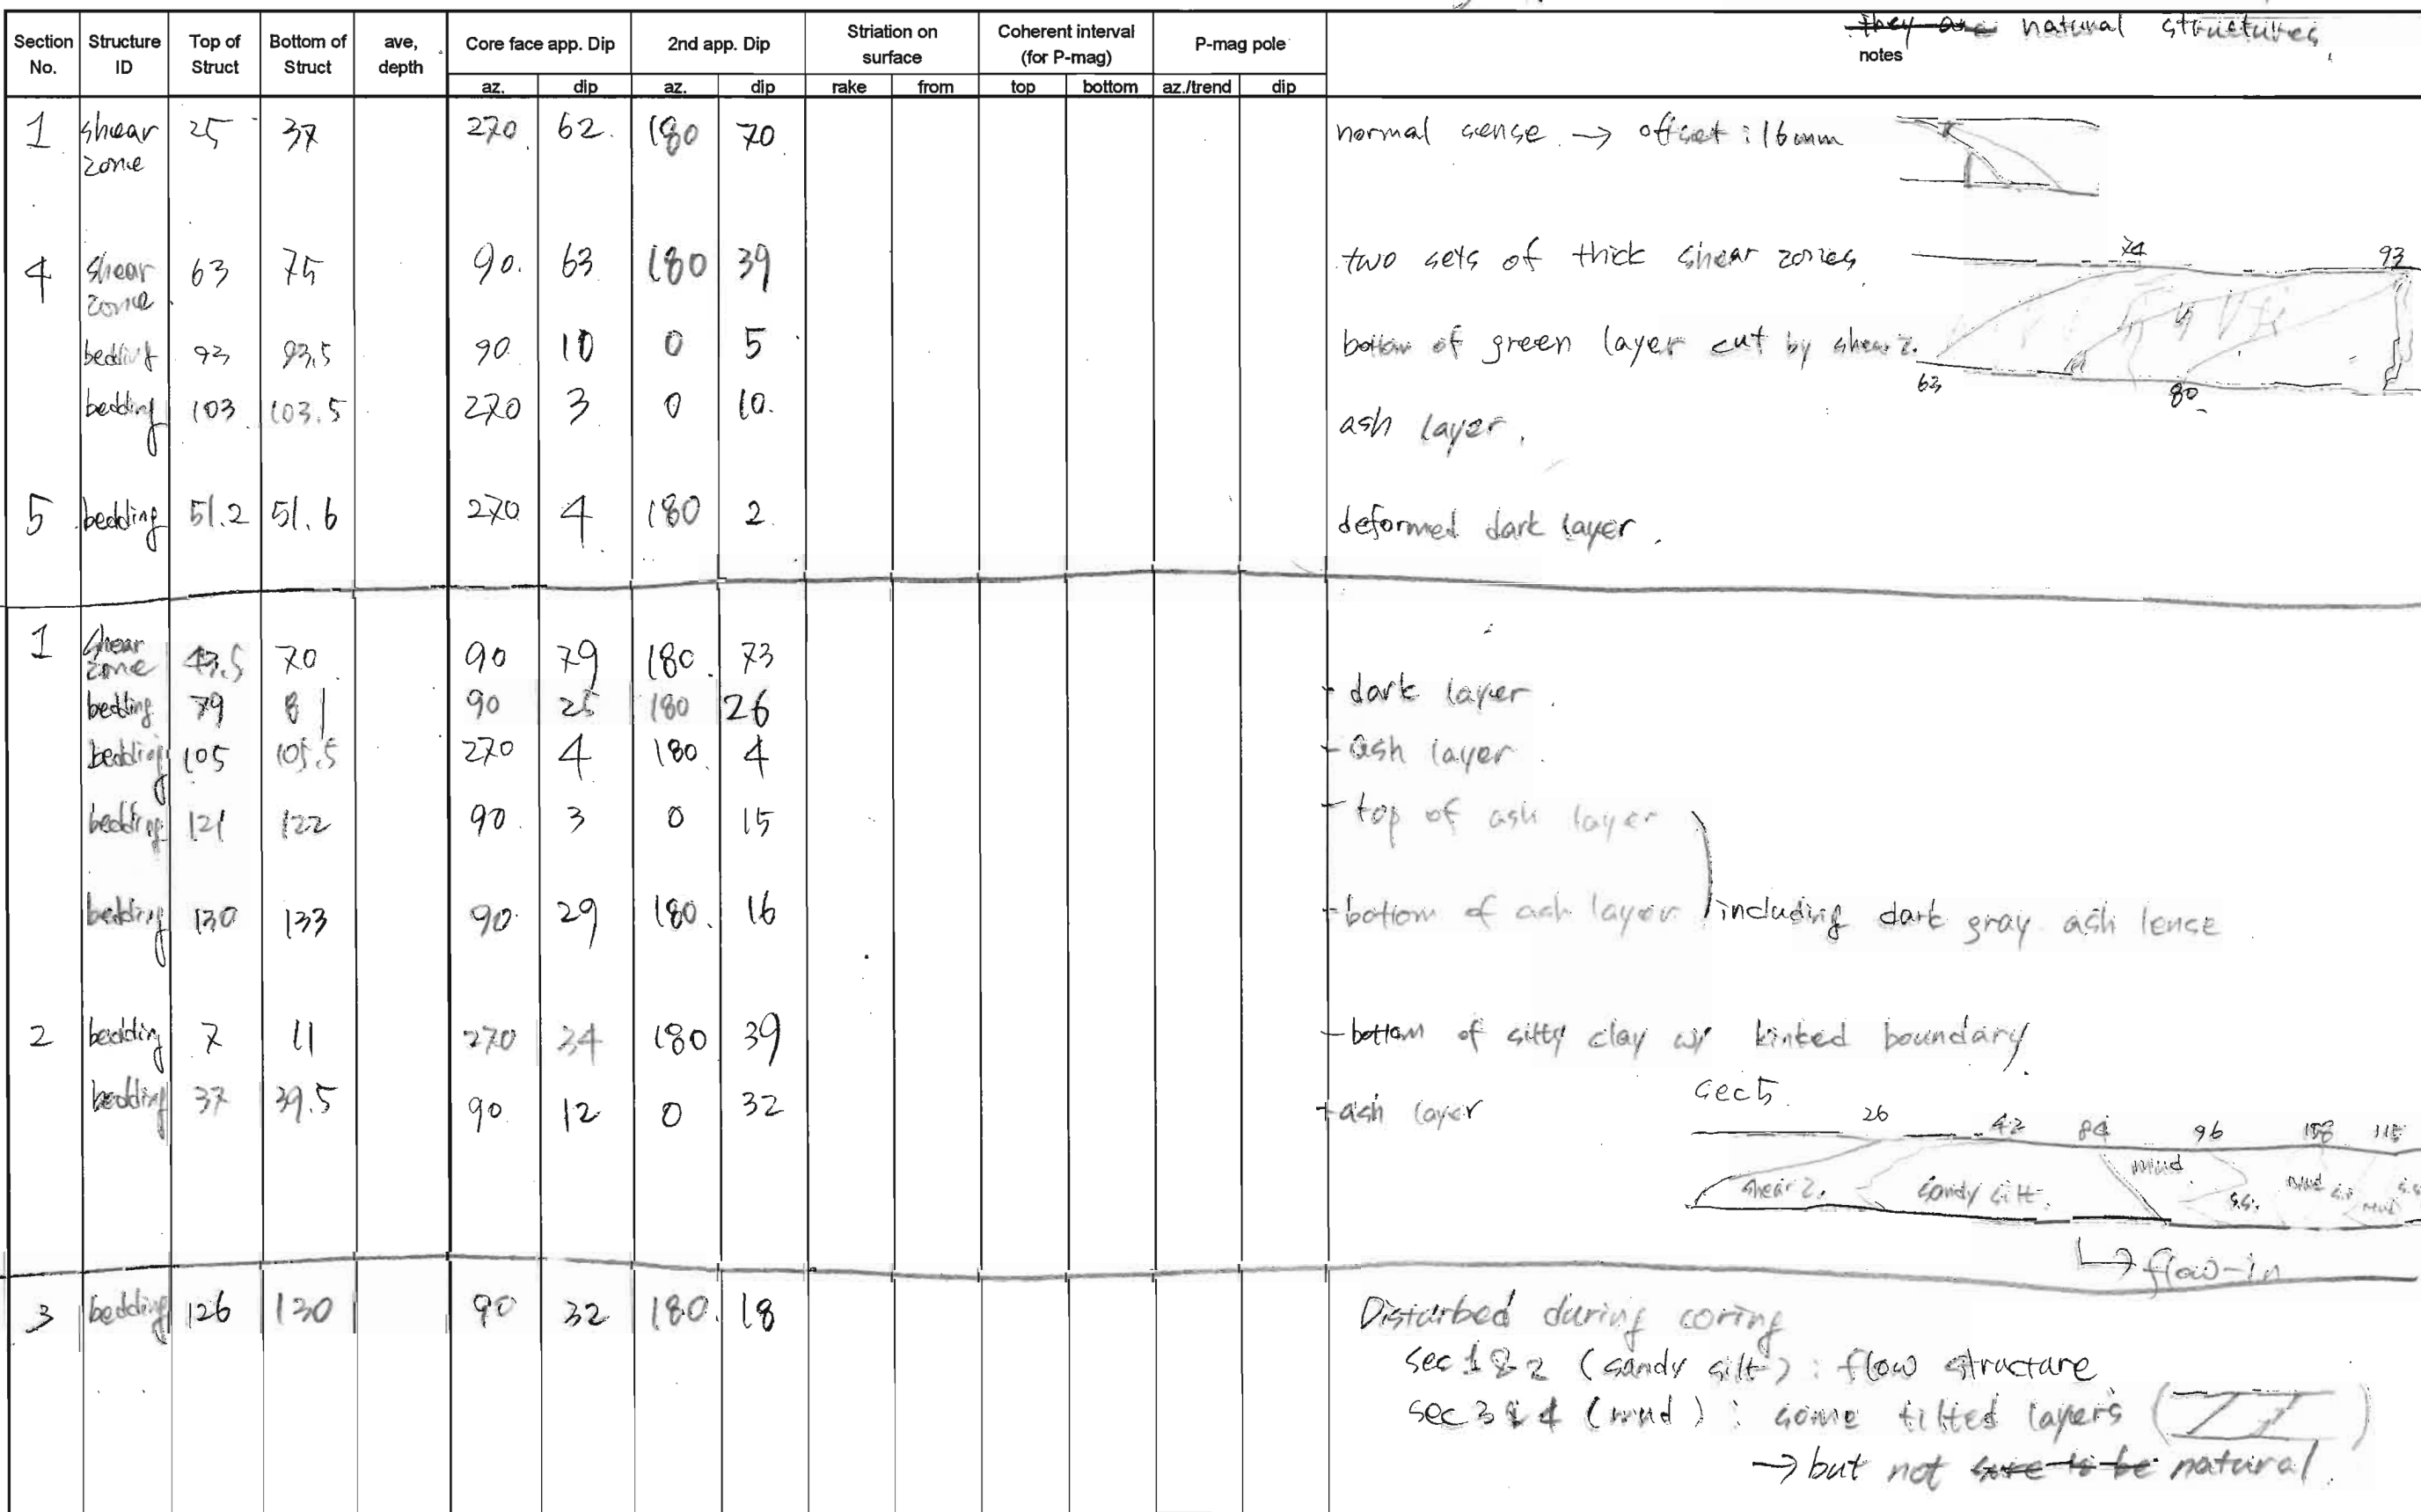 they are natural structures
Section No. Structure ID Top of Struct Bottom of Struct ave, depth Core face app. Dip 2nd app. Dip Striation on surface Coherent interval (for P-mag) P-mag pole notes
az. dip az. dip rake from top bottom az./trend dip
1 shear zone 25 37 270 62 180 70 normal sense → offset : 16mm
4 shear zone 63 75 90 63 180 39 two sets of thick shear zones 74 93
bedding 93 93.5 90 10 0 5 bottom of green layer cut by shear z.
63 80
bedding 103 103.5 270 3 0 10 ash layer.
5 bedding 51.2 51.6 270 4 180 2 deformed dark layer.
1 shear zone 43.5 70 90 79 180 73
bedding 79 81 90 25 180 26 - dark layer.
bedding 105 105.5 270 4 180 4 - ash layer.
bedding 121 122 90 3 0 15 - top of ash layer
bedding 130 133 90 29 180 16 - bottom of ash layer including dark gray ash lense
2 bedding 7 11 270 34 180 39 - bottom of silty clay w/ kinked boundary
bedding 37 39.5 90 12 0 32 - ash layer
sec 5 26 42 84 96 108 115
shear z. sandy silt mud s.s. mud s.s. mud s.s.
↳ flow-in
3 bedding 126 130 90 32 180 18 Disturbed during coring
sec 1 & 2 (sandy silt) : flow structure
sec 3 & 4 (mud) : some tilted layers ( )
→ but not sure to be natural.